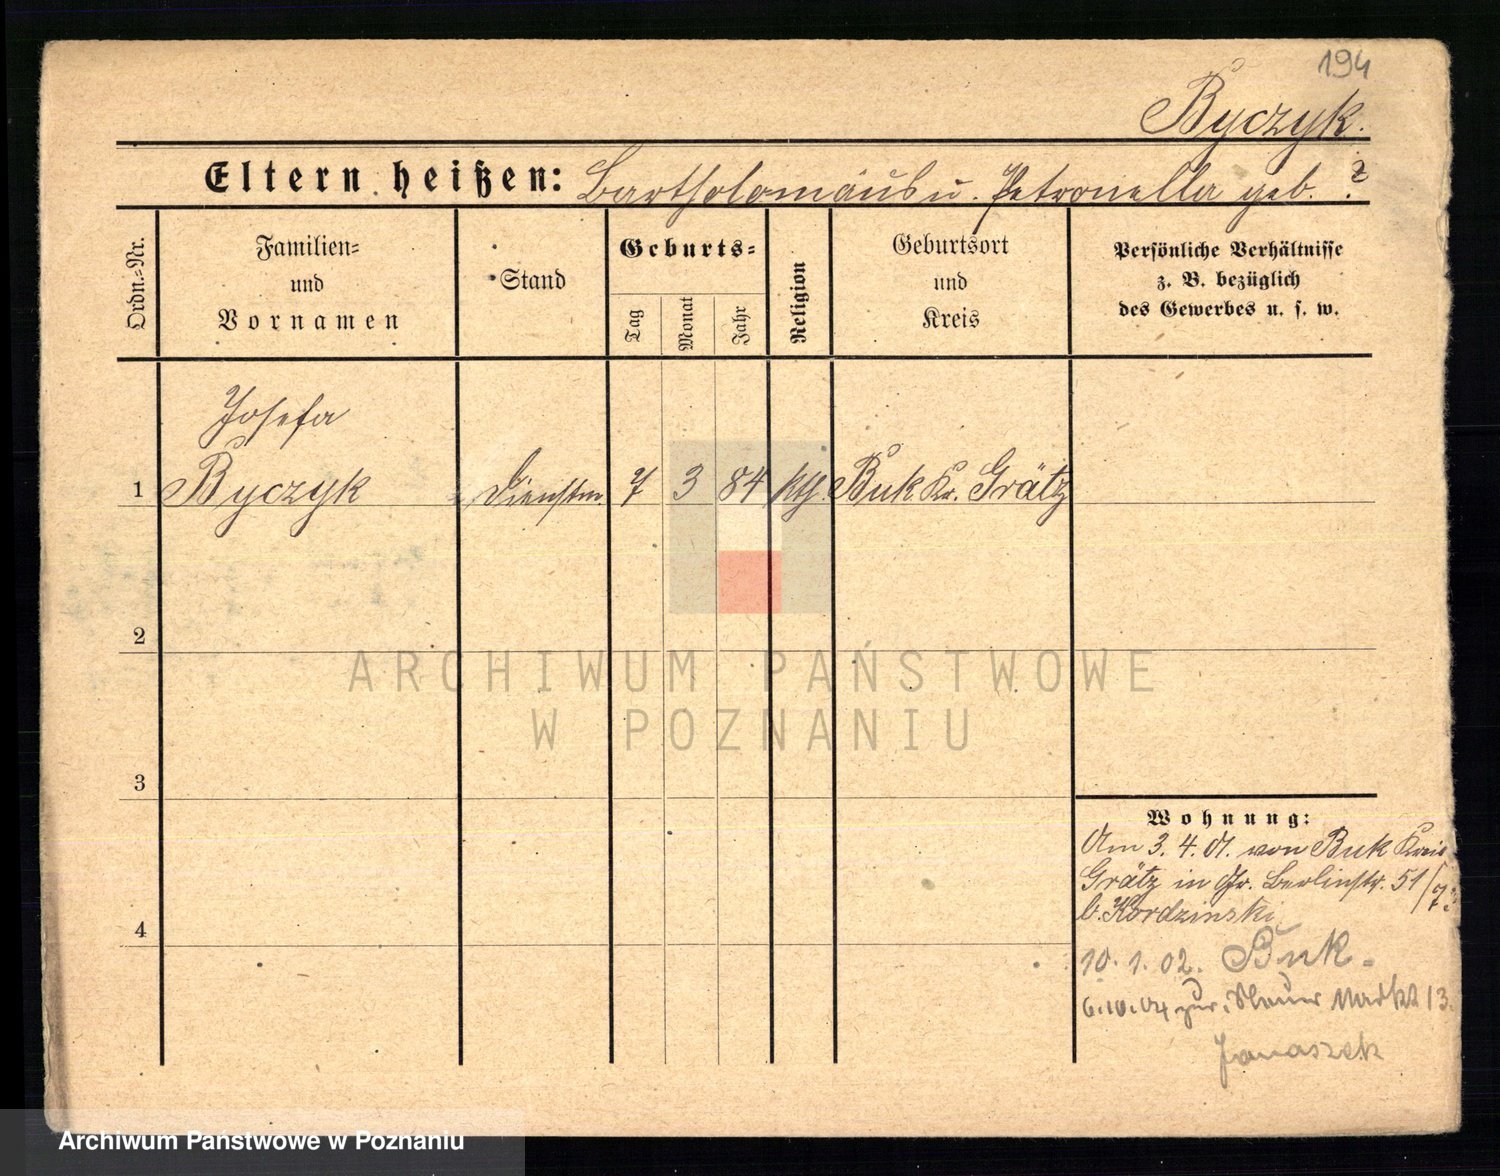 194
Byczyk.
Eltern heißen: Bartholomäus u. Petronella geb. ?
Ordn.=Nr.
Familien=
und
Vornamen
Stand
Geburts=
Tag
Monat
Jahr
Religion
Geburtsort
und
Kreis
Persönliche Verhältnisse
z. B. bezüglich
des Gewerbes u. s. w.
Josefa
1 Byczyk Dienstm. 7 3 84 kth. Buk Kr. Grätz
2
3
4
Wohnung:
Am 3. 4. 01. von Buk Kreis
Grätz in Gr. Berlinstr. 51/
b. Kordzinski
10. 1. 02. Buk.
6.10.04 zur. Markt 3.
Janaszek
ARCHIWUM PAŃSTWOWE
W POZNANIU
Archiwum Państwowe w Poznaniu